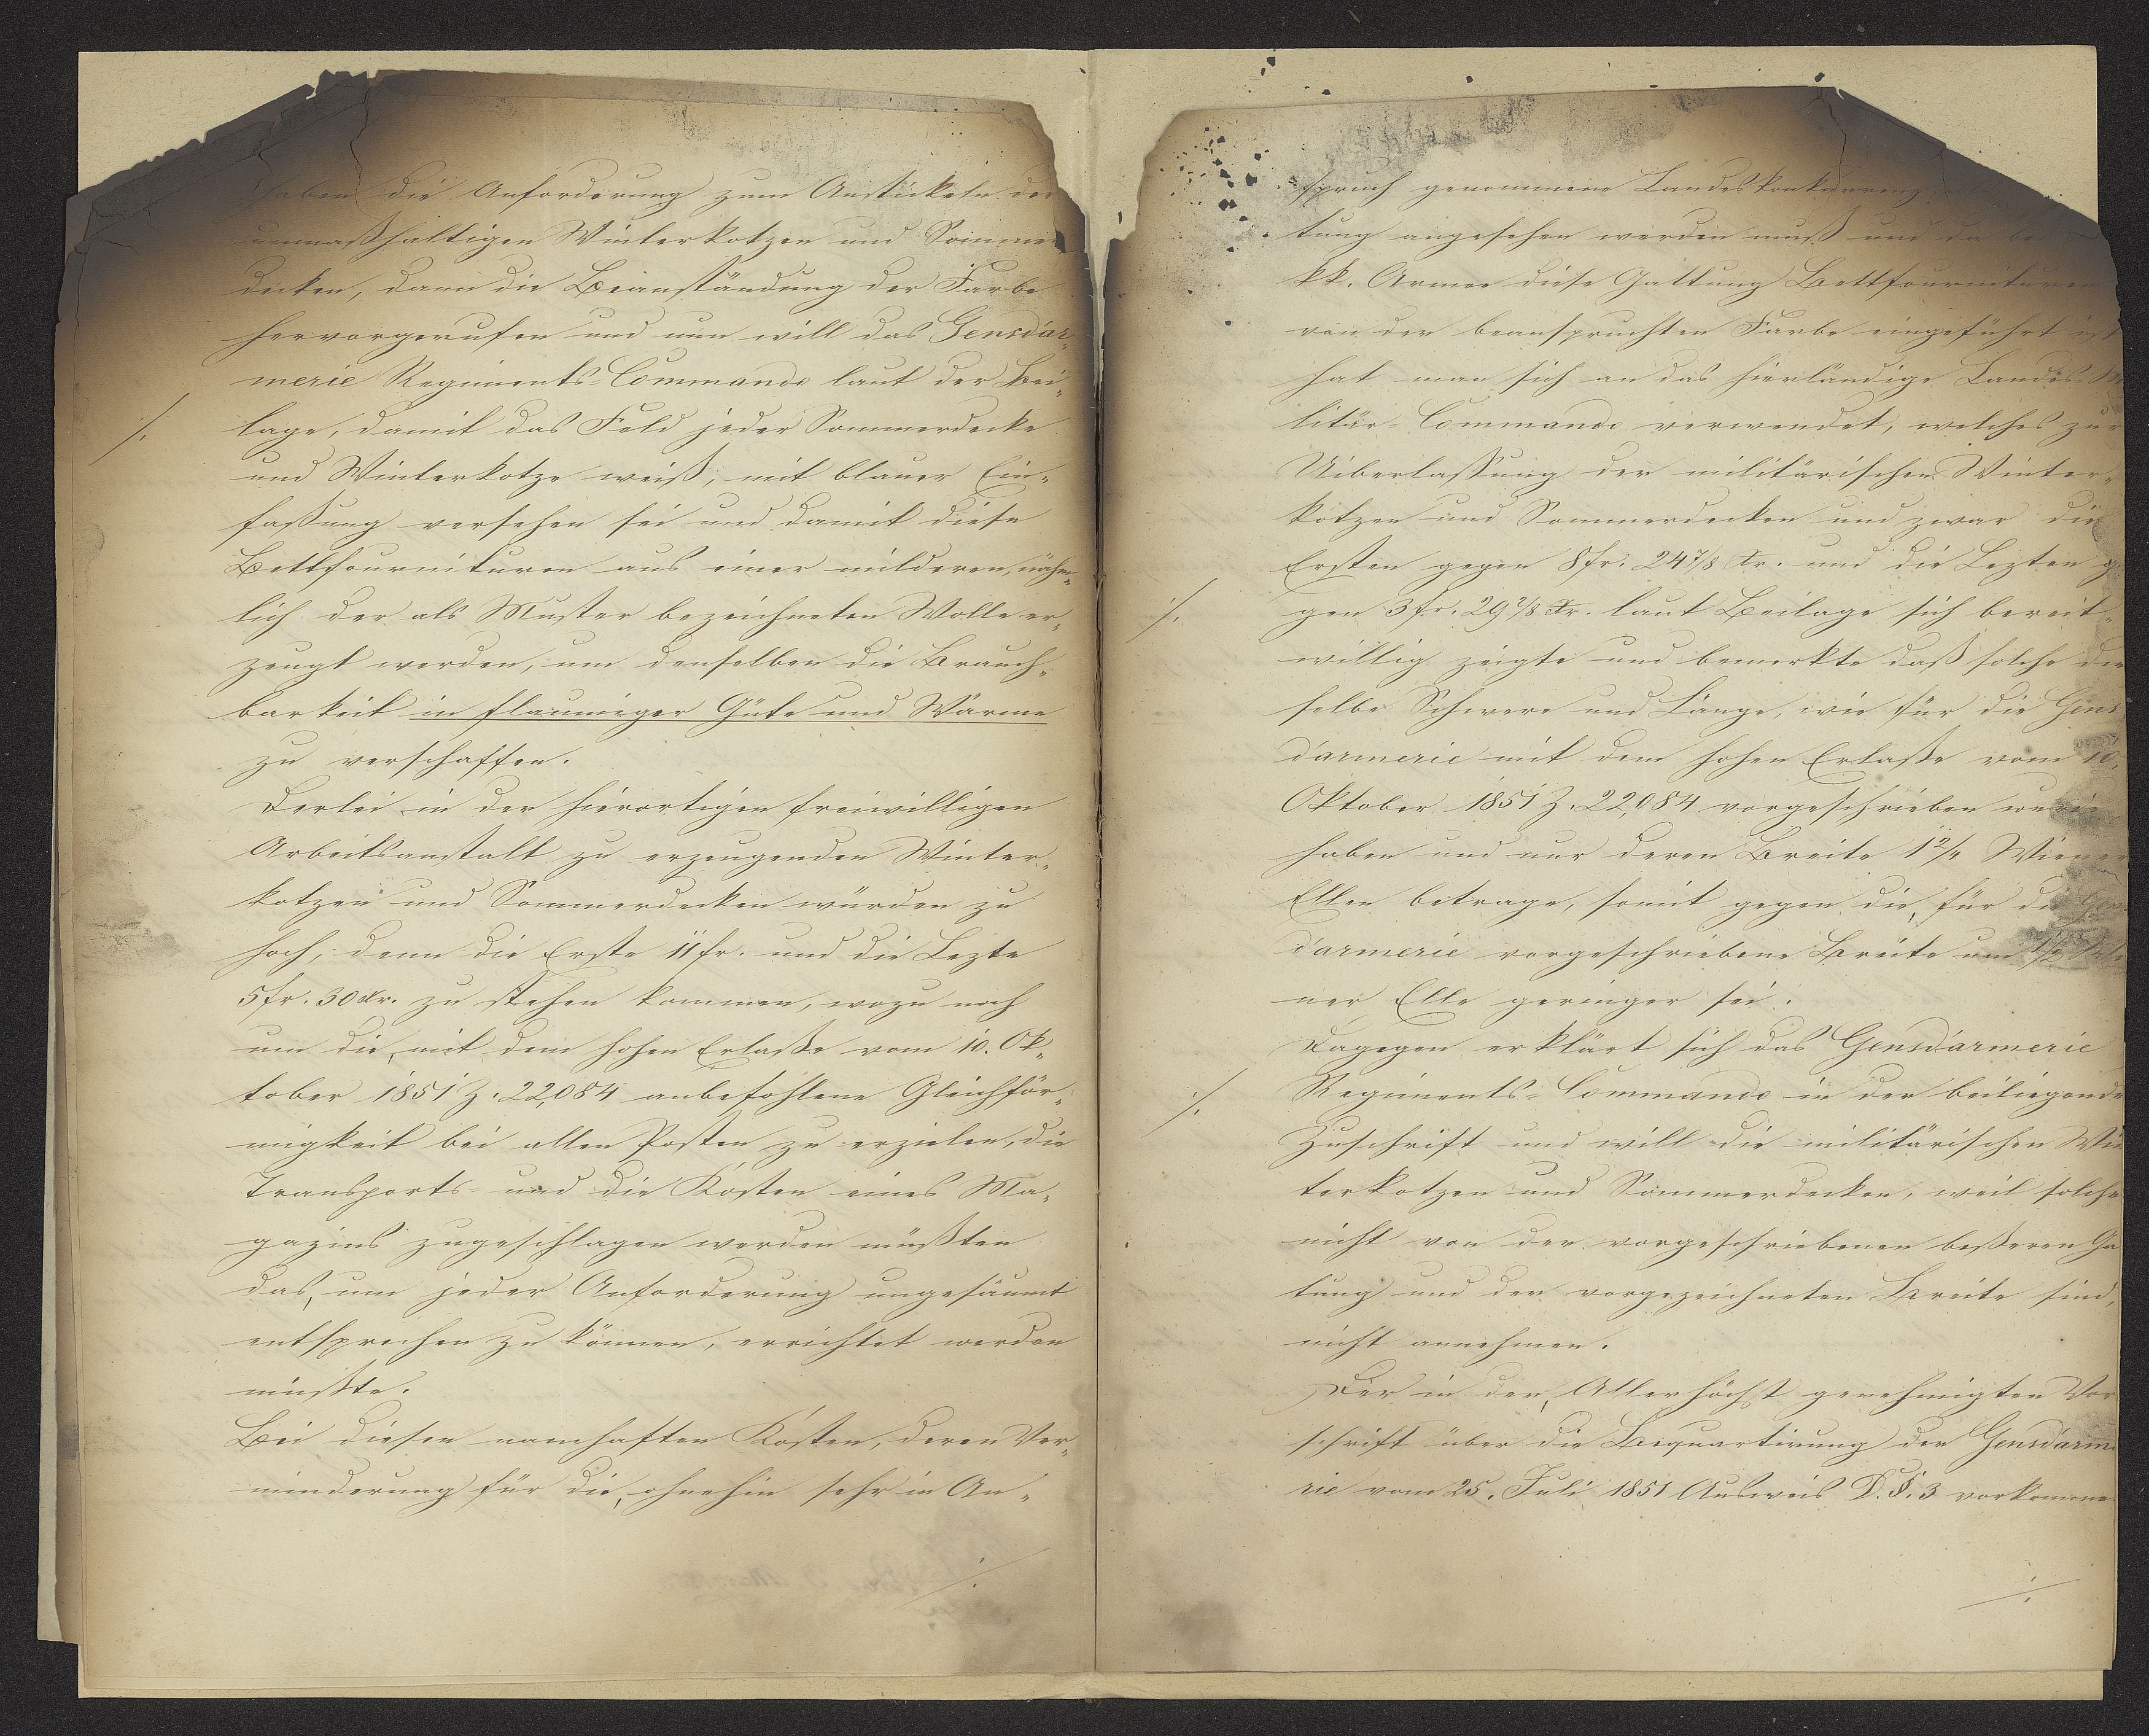 haben die Anforderung zum Anstückeln der
unmaßhältigen Winterkotzen und Sommer
decken, dann die Beanständung der Farbe
hervorgerufen und nun will das Gensdar¬
merie Regiments-Commando laut der Bei¬
./. lage, damit das Feld jeder Sommerdecke
und Winterkotze weiß, mit blauer Ein¬
faßung versehen sei und damit diese
Bettfournituren aus einer milderen, nähm¬
lich der als Muster bezeichneten Wolle er¬
zeugt werden, um denselben die Brauch¬
barkeit in flaumiger Güte und Wärme
zu verschaffen.
Derlei in der hierortigen freiwilligen
Arbeitsanstalt zu erzeugenden Winter¬
kotzen und Sommerdecken würden zu
hoch, denn die Erste 11 fr. und die Lezte
5 fr. 30 Xr. zu stehen kommen, wozu noch
um die, mit dem hohen Erlaße vom 10. Ok¬
tober 1851 Z. 22,084 anbefohlene Gleichför¬
migkeit bei allen Posten zu erzielen, die
Transports- und die Kosten eines Ma¬
gazins zugeschlagen werden müßten
das, um jeder Anforderung ungesäumt
entsprechen zu können, errichtet werden
müßte.
Bei diesen namhaften Kosten, deren Ver¬
minderung für die, ohnehin sehr in An¬
./.
spruch genommene Landeskonkurrenz
tung angesehen werden muß und da
kk. Armee diese Gattung Bettfournituren
von der beanspruchten Farbe eingeführt ist
hat man sich an das hierländige Landes-Mi
litär-Commando verwendet, welches zur
Uiberlaßung der militärischen Winter¬
kotzen und Sommerdecken und zwar die
Ersten gegen 8 fr. 24 7/8 Xr. und die Lezten ge
./. gen 3 fr. 29 2/8 Xr. laut Beilage sich bereit¬
willig zeigte und bemerkte daß solche die
selbe Schwere und Länge, wie für die Gens
d'armerie mit dem hohen Erlaße vom 10.
Oktober 1851 Z. 22,084 vorgeschrieben wurde
haben und nur deren Breite 1 2/4 Wiener
Ellen betrage, somit gegen die, für die Gens
d'armerie vorgeschriebene Breite um 1/2 Wie
ner Elle geringer sei.
Dagegen erklärt sich das Gensdarmerie
./. Regiments-Commando in der beiliegende
Zuschrift und will die militärischen Win
terkotzen und Sommerdecken, weil solche
nicht von der vorgeschriebenen beßeren Ga
tung und der vorgezeichneten Breite sind,
nicht annehmen.
Der in der, Allerhöchst genehmigten Vor
schrift über die Bequartirung der Gensdarme
rie vom 25. Juli 1851 Ausweis D. §. 3 vorkomme
./.